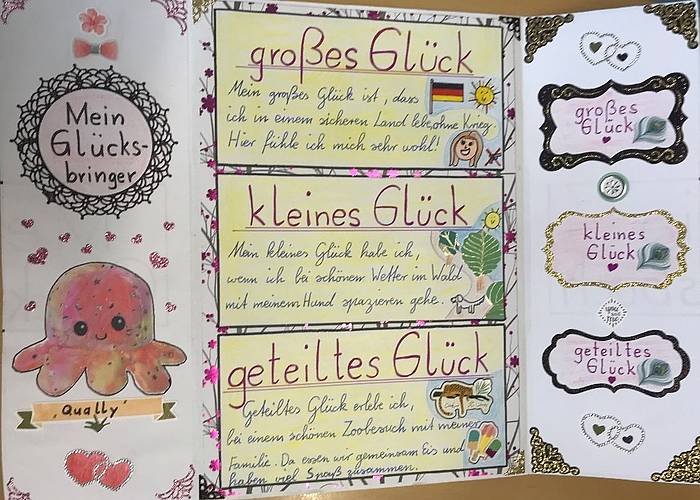 Mein
Glücks-
bringer
'Qually'
großes Glück
Mein großes Glück ist, dass
ich in einem sicheren Land lebe, ohne Krieg.
Hier fühle ich mich sehr wohl!
kleines Glück
Mein kleines Glück habe ich,
wenn ich bei schönem Wetter im Wald
mit meinem Hund spazieren gehe.
geteiltes Glück
Geteiltes Glück erlebe ich,
bei einem schönen Zoobesuch mit meiner
Familie. Da essen wir gemeinsam Eis und
haben viel Spaß zusammen.
großes
Glück
kleines
Glück
you
and
me
geteiltes
Glück